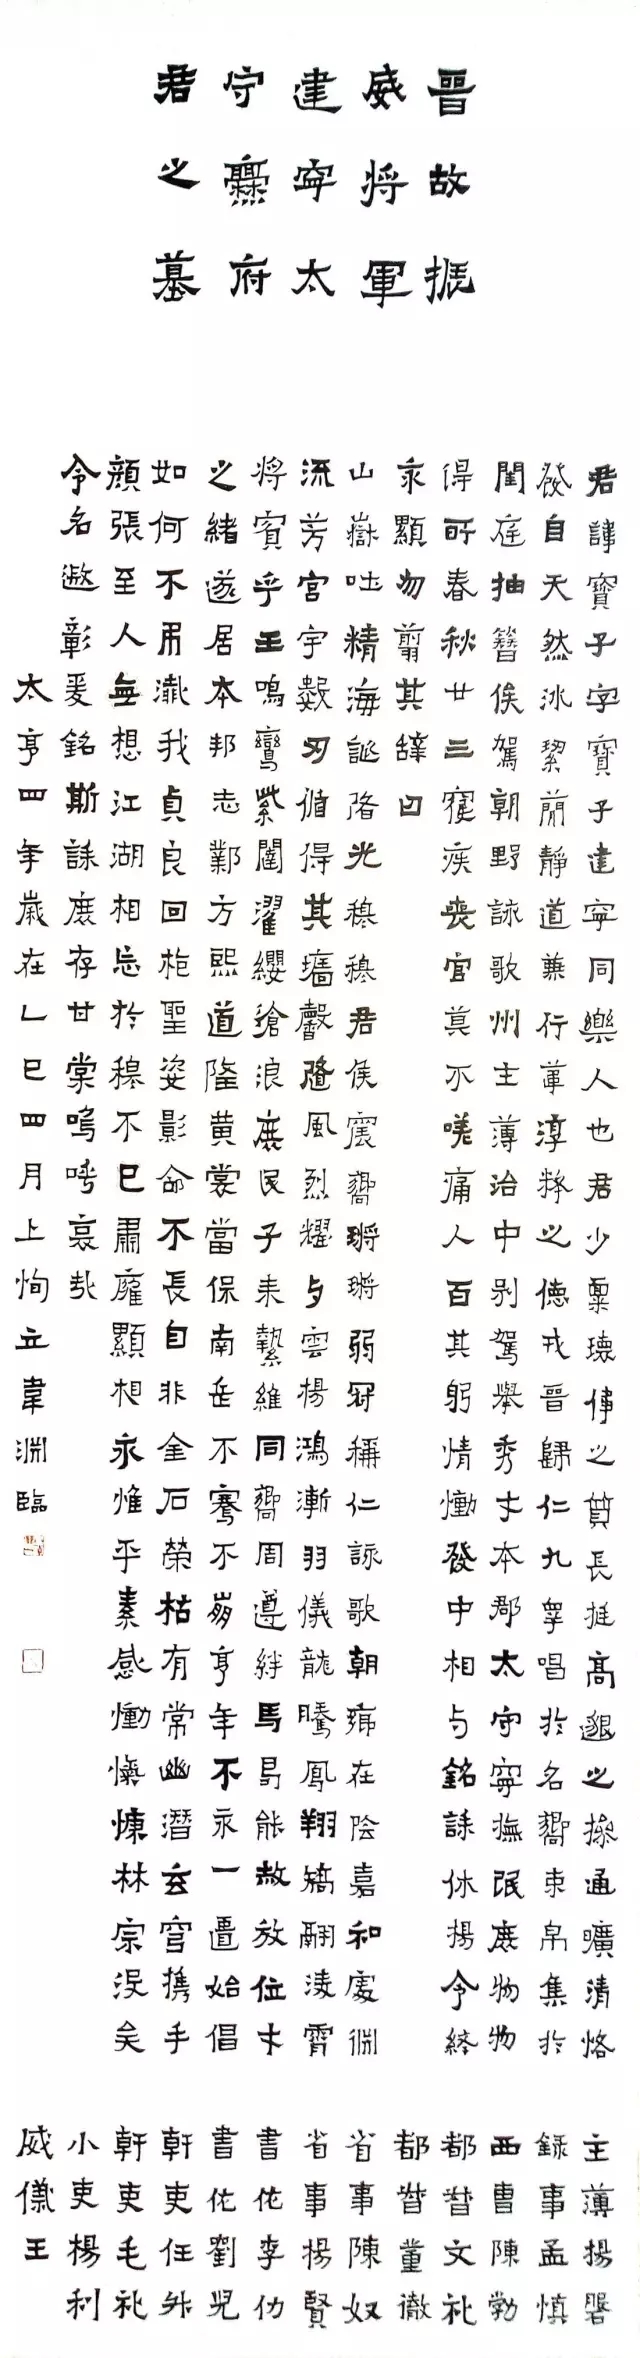 晋故振
威將軍
建寧太
守爨府
君之墓
君諱寶子字寶子建寧同樂人也君少稟瓌偉之質長挺高邈之操通曠清恪
發自天然冰絜簡靜道兼行葦淳粹之德戎晉歸仁九皋唱於名嚮束帛集於
閨庭抽簪俟駕朝野詠歌州主薄治中別駕舉秀才本郡太守寧撫氓庶物物
得所春秋廿三寢疾喪官莫不嗟痛人百其躬情慟發中相与銘誄休揚令終
永顯勿翦其辭曰
山嶽吐精海誕陪光穆穆君侯震嚮鏘鏘弱冠稱仁詠歌朝鄉在陰嘉和處淵
流芳宮宇數仞循得其墻馨隨風烈耀与雲揚鴻漸羽儀龍騰鳳翔矯翮淩霄
將賓乎王鳴鸞紫闥濯纓滄浪庶民子来縶維同嚮周遵絆馬曷能赦放位才
之緒遂居本邦志鄴方熙道隆黄裳當保南岳不騫不崩享年不永一匱始倡
如何不弔殲我貞良回枹聖姿影命不長自非金石榮枯有常幽潛玄穹携手
顔張至人無想江湖相忘於穆不已肅雍顯相永惟平素感慟愾慷林宗沒矣
令名遐彰爰銘斯誄庶存甘棠嗚呼哀哉
太亨四年歲在乙巳四月上恂立韋淵臨
主薄楊磐
録事孟慎
西曹陳勃
都督文礼
都督董徹
省事陳奴
省事楊賢
書佐李仂
書佐劉兒
軒吏任升
軒吏毛礼
小吏楊利
威儀王